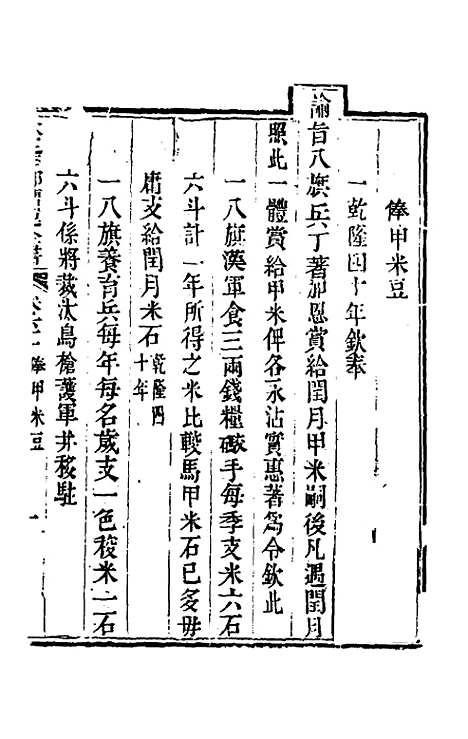 俸甲米豆
一乾隆四十年欽奉
諭旨八旗兵丁著加恩賞給閏月甲米嗣後凡遇閏月
照此一體賞給甲米俾各永沾實惠著爲令欽此
一八旗漢軍食三兩錢糧礮手每季支米六石
六斗計一年所得之米比較馬甲米石已多毋
庸支給閏月米石乾隆四十年
一八旗養育兵每年每名歲支一色稜米一石
六斗係將裁汰鳥槍護軍并移駐
俸甲米豆